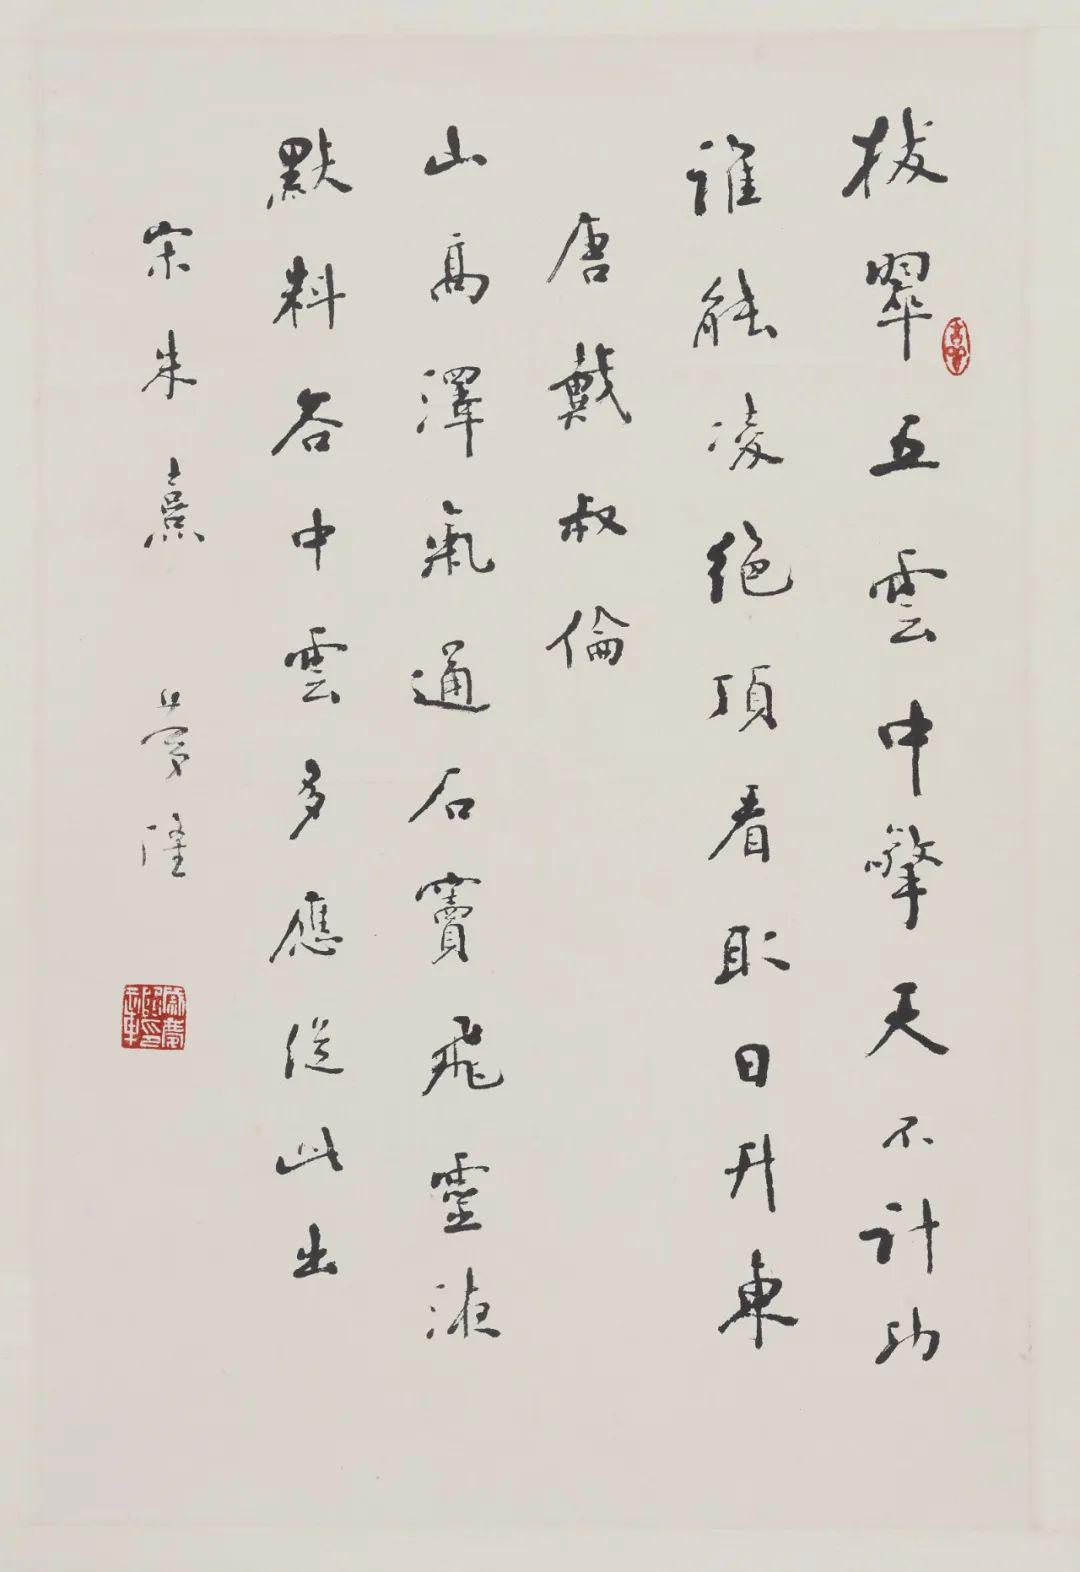 拔翠五雲中擎天不計功
誰能凌絕頂看取日升東
唐戴叔倫
山高澤氣通石竇飛靈液
默料谷中雲多應從此出
宋朱熹